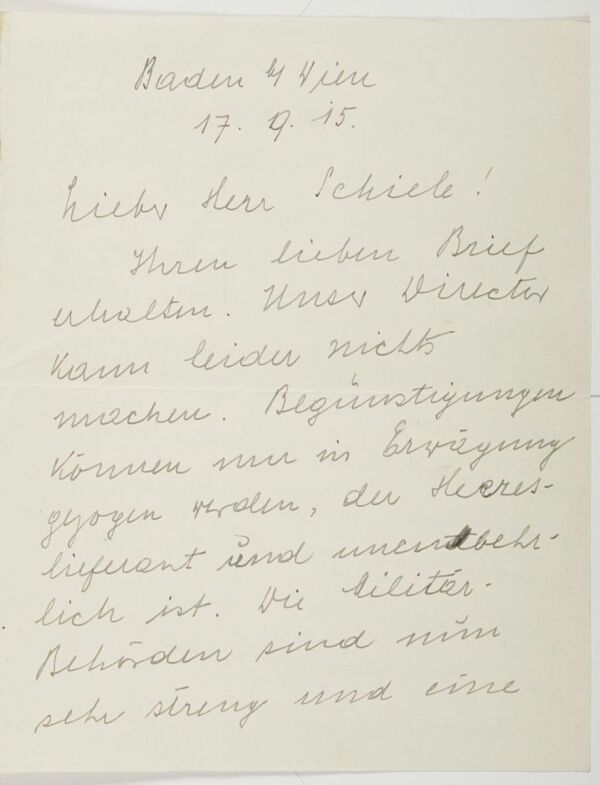 Baden b/ Wien
17. 9. 15.
Lieber Herr Schiele!
Ihren lieben Brief
erhalten. Unser Director
kann leider nichts
machen. Begünstigungen
können nur in Erwägung
gezogen werden, der Heeres-
lieferant und unentbehr-
lich ist. Die Militär-
Behörden sind nun
sehr streng und eine